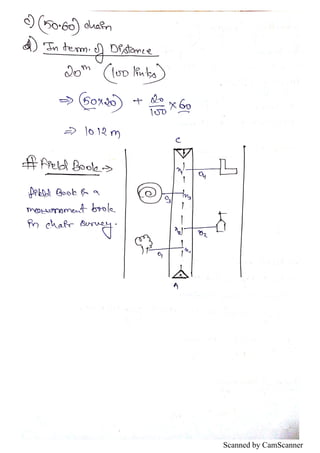 c) (50.60) chain
d) In term. of Distance
20 m (100 links)
⇒ (50×20) + 20/100 × 60
⇒ 1012 m
# Field Book →
field Book is a
measurement book
in chain survey.
C
x4 O4
O3 x3
x2 O2
O1 x1
A
Scanned by CamScanner